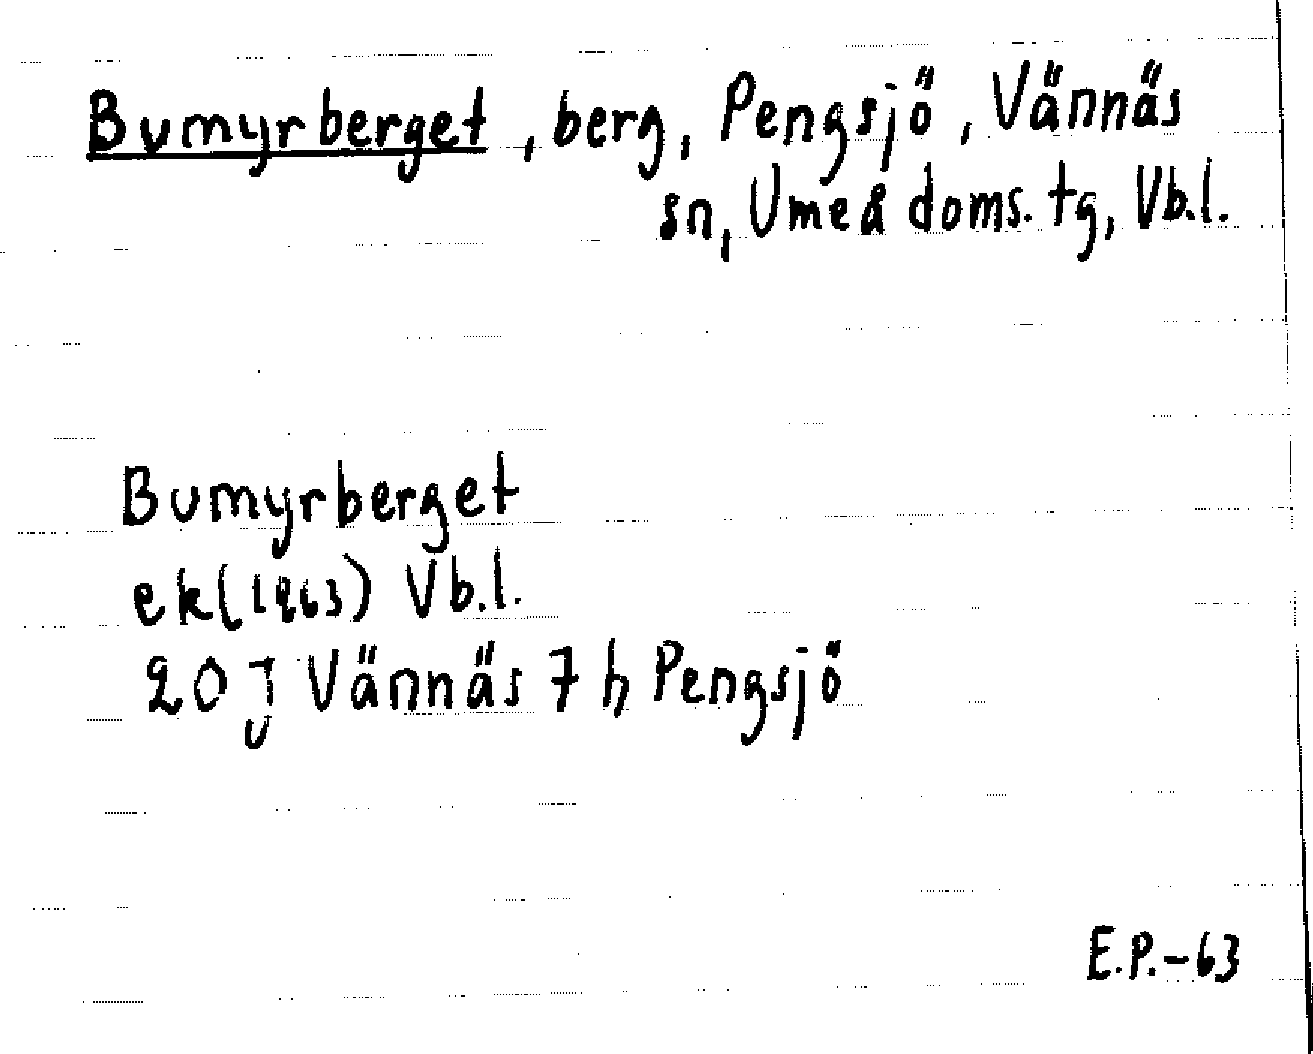 Bumyrberget, berg, Pengsjö, Vännäs
sn, Umeå doms. tg, Vb.l.
Bumyrberget
ek(1963) Vb.l.
20 J Vännäs 7 h Pengsjö
E.P.-63